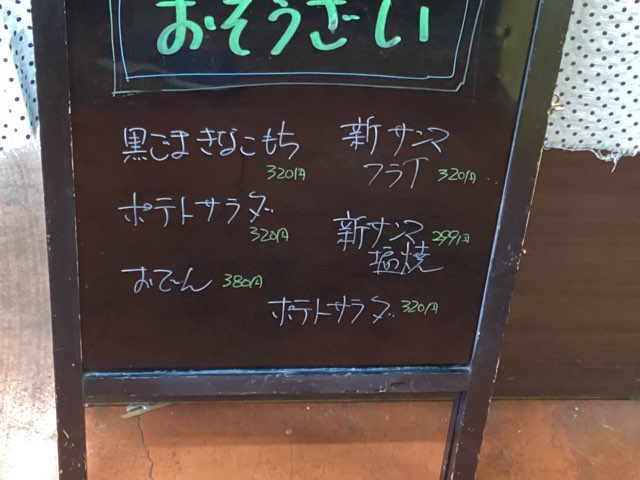 おそうざい
黒ごまきなこもち
320円
ポテトサラダ
320円
おでん 380円
新サンマ
フライ 320円
新サンマ 299円
塩焼
ポテトサラダ 320円